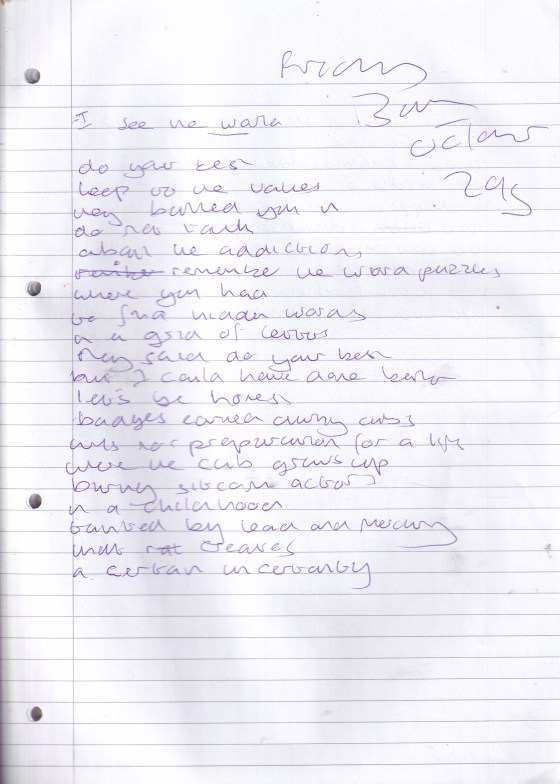 Friday
3am
October
29s
I see the world
do your best
keep to the values
they burned you in
do not talk
about the addictions
remember the word puzzles
where you had
to find hidden words
in a grid of letters
they said do your best
but I could have done better
let's be honest
badges earned during cubs
was not preparation for a life
where the cub grows up
burying sitcom actors
in a childhood
tainted by lead and mercury
that creates
a certain uncertainty